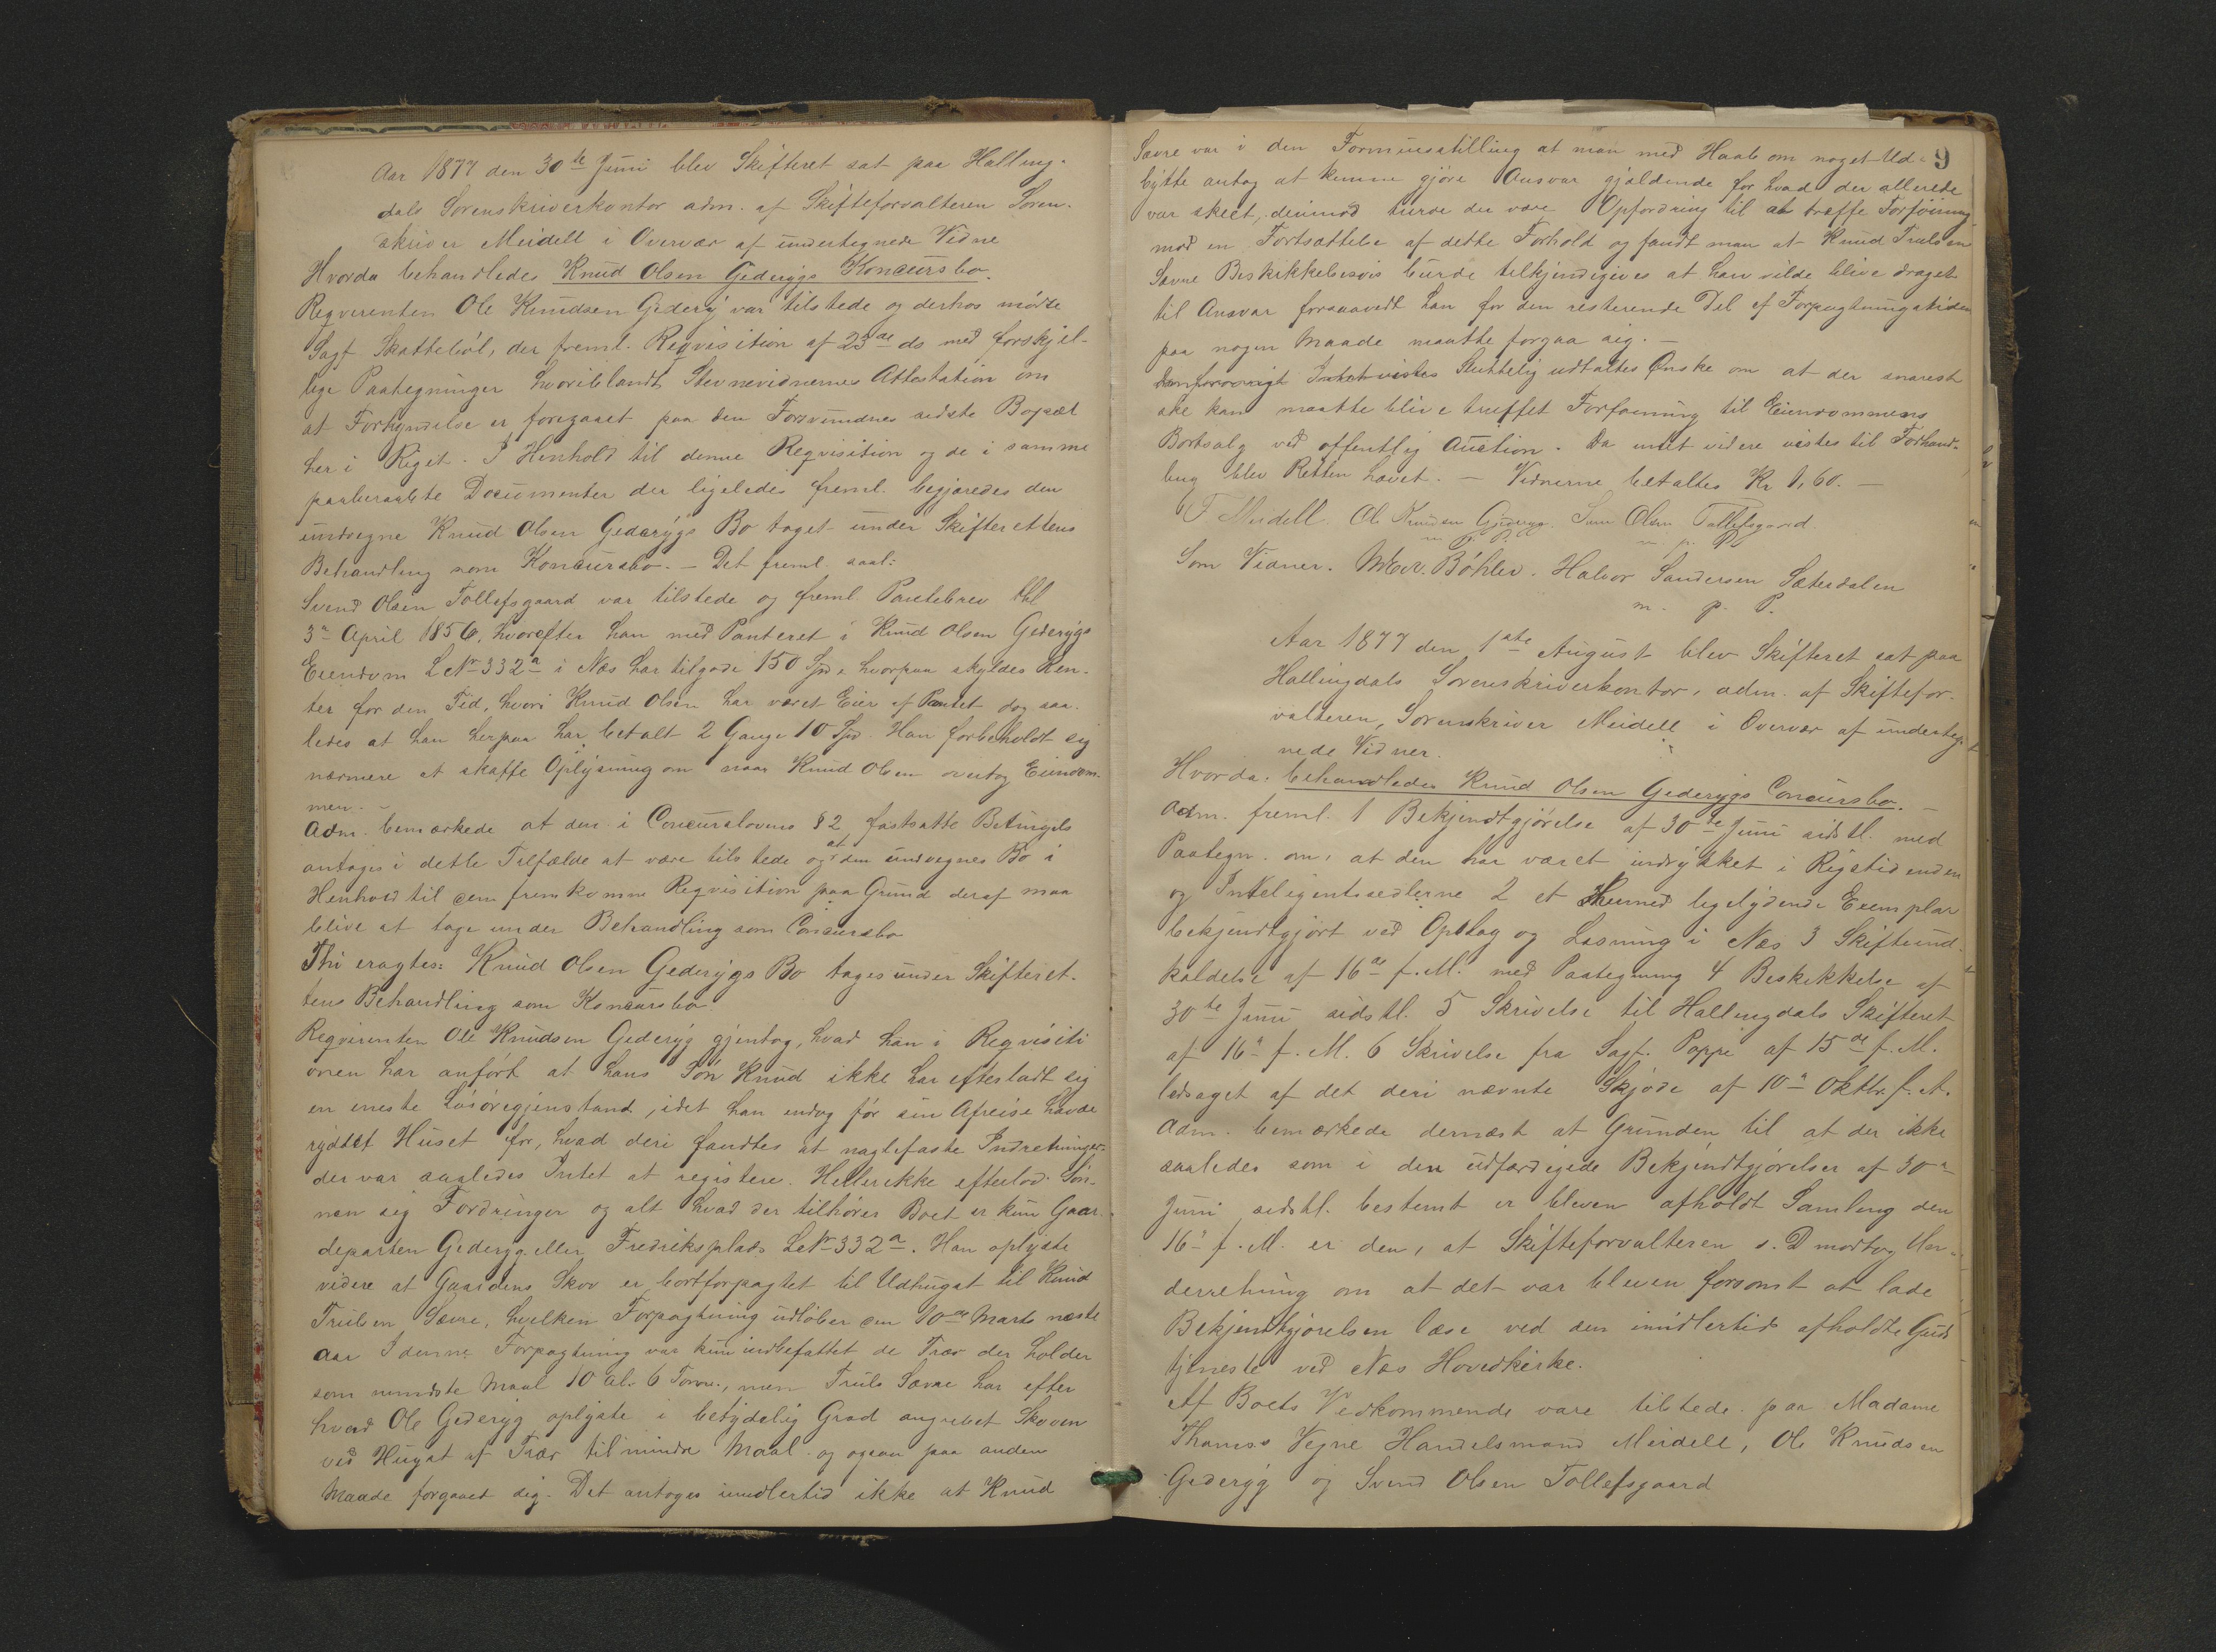 Aar 1877 den 30te Juni blev Skifteret sat paa Halling-
dals Sorenskriverkontor adm. af Skifteforvalteren Soren-
skriver Meidell i Overvær af undertegnede Vidne
Hvorda behandledes Knud Olsen Gederygs Koncursbo.
Reqverenten Ole Knudsen Gederyg var tilstede og derhos mødte
Sagf. Skattebøl, der freml. Reqvisition af 23de ds med forskjel-
lige Paategninger hvoriblandt Stevnevidnernes Attestation om
at Forkyndelse er foregaaet paa den Forsvundnes sidste Bopæl
her i Riget. I Henhold til denne Reqvisition og de i samme
paaberaabte Documenter der ligeledes freml. begjæredes den
undvegne Knud Olsen Gederygs Bo taget under Skifterettens
Behandling som Koncursbo. — Det freml. saal:
Svend Olsen Tollefsgaard var tilstede og freml. Pantebrev thl
3die April 1856, hvorefter han med Panteret i Knud Olsen Gederygs
Eiendom L No 332a i Næs har tilgode 150 Spd, hvorpaa skyldes Ren-
ter for den Tid, hvori Knud Olsen har været Eier af Pantet dog saa-
ledes at han herpaa har betalt 2 Gange 10 Spd. Han forbeholdt sig
nærmere at skaffe Oplysning om naar Knud Olsen overtog Eiendom-
men. —
Adm. bemærkede at den i Concurslovens § 2 fastsatte Betingels
antages i dette Tilfælde at være tilstede og at den undvegnes Bo i
Henhold til den fremkomne Reqvisition paa Grund deraf maa
blive at tage under Behandling som Concursbo
Thi eragtes: Knud Olsen Gederygs Bo tages under Skifteret-
tens Behandling som Koncursbo
Reqvirenten Ole Knudsen Gederyg gjentog, hvad han i Reqvisiti
onen har anført at hans Søn Knud ikke har efterladt sig
en eneste Løsøregjenstand, idet han endog før sin Afreise havde
ryddet Huset for, hvad deri fandtes at naglefaste Indretninger
der var saaledes Intet at registere. Heller ikke efterlod Søn-
nen sig Fordringer og alt hvad der tilhører Boet er kun Gaar-
departen Gederyg eller Fredriksplads LNo 332a. Han oplyste
videre at Gaardens Skov er bortforpagtet til Udhugst til Knud
Trulsen Sævre, hvilken Forpagtning udløber den 10de Marts næste
Aar I denne Forpagtning var kun indbefattet de Trær der holder
som mindste Maal 10 al. 6 Tomr., men Truls Sævre har efter
hvad Ole Gederyg oplyste i betydelig Grad angrebet Skoven
ved Hugst af Trær til mindre Maal og ogsaa paa anden
Maade forgaaet sig. Det antoges imidlertid ikke at Knud
9
Sævre var i den Formuesstilling at man med Haab om noget Ud-
bytte antog at kunne gjøre Ansvar gjældende for hvad der allerede
var skeet, derimod turde der være Opfordring til at træffe Forføining
mod en Fortsættelse af dette Forhold og fandt man at Knud Trulsen
Sævre Beskikkelsesvis burde tilkjendegives at han vilde blive draget
til Ansvar forsaavidt han for den resterende Del af Forpagtningstiden
paa nogen Maade maatte forgaa sig. —
Sluttelig udtaltes Ønske om at der snarest
ske kan maatte blive truffet Forføining til Eiendommens
Bortsalg ved offentlig Auction. Da intet videre vistes til Forhand-
ling blev Retten hævet. — Vidnerne betaltes Kr 1,60. —
F. Meidell. Ole Knudsen Gjederyg. Svend Olsen Tollefsgaard.
m. p. P. m. p. P.
Som Vidner. Bøhler. Halvor Sandersen Sæterdalen
m. p. P.
Aar 1877 den 1ste August blev Skifteret sat paa
Hallingdals Sorenskriverkontor, adm. af Skiftefor-
valteren, Sorenskriver Meidell i Overvær af underteg-
nede Vidner.
Hvorda: behandledes Knud Olsen Gederygs Concursbo. —
Adm. freml. 1 Bekjendtgjørelse af 30te Juni sidstl. med
Paategn. om, at den har været indrykket i Rigstidenden
og Inteligentssedlerne 2 et Hermed ligelydende Exemplar
bekjendtgjort ved Opslag og Læsning i Næs 3 Skifteind-
kaldelse af 16de f. M. med Paategning 4 Beskikkelse af
30te Juni sidstl. 5 Skrivelse til Hallingdals Skifteret
af 16de f. M. 6 Skrivelse fra Sagf. Poppe af 15de f. M.
ledsaget af det deri nævnte Skjøde af 10de Oktbr. f. A.
Adm. bemærkede dernæst at Grunden til at der ikke
saaledes som i den udfærdigede Bekjendtgjørelser af 30te
Juni sidstl. bestemt er bleven afholdt Samling den
16de f. M. er den, at Skifteforvalteren s. D modtog Un-
derretning om at det var bleven forsømt at lade
Bekjendtgjørelsen læse ved den imidlertid afholdte Guds
tjeneste ved Næs Hovedkirke.
Af Boets Vedkommende vare tilstede paa Madame
Thams's Vegne Handelsmand Meidell, Ole Knudsen
Gederyg og Svend Olsen Tollefsgaard